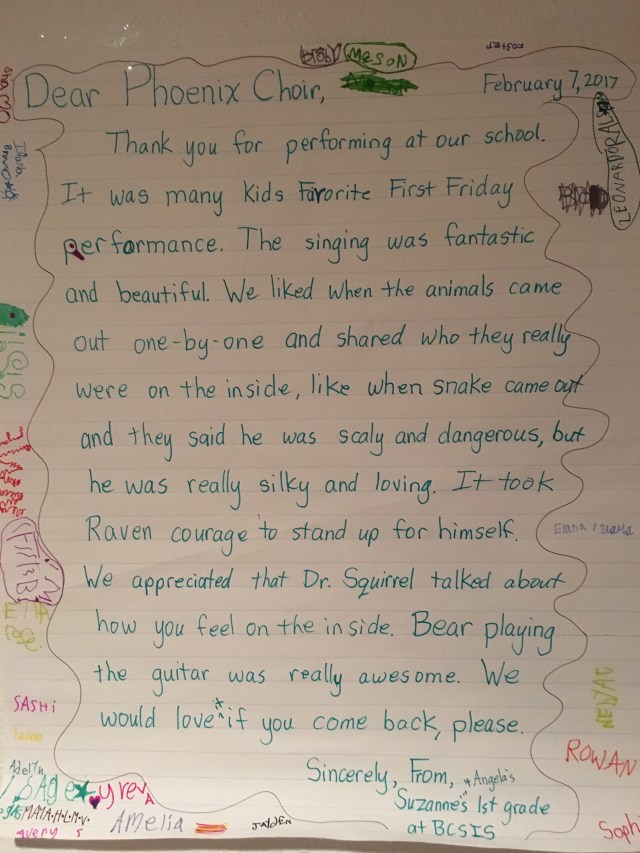 MESON
FOSTER
Dear Phoenix Choir,
February 7, 2017
LEONARDORAL
Thank you for performing at our school.
It was many Kids Favorite First Friday
performance. The singing was fantastic
and beautiful. We liked when the animals came
out one-by-one and shared who they really
were on the inside, like when snake came out
and they said he was scaly and dangerous, but
he was really silky and loving. It took
Raven courage to stand up for himself.
Elana
We appreciated that Dr. Squirrel talked about
how you feel on the inside. Bear playing
the guitar was really awesome. We
would love if you come back, please.
SASHi
ROWAN
Sincerely, From, *Angela's
Suzanne's 1st grade
at BCSIS
Sage
Amelia
JAYDEN
Avery S
Soph